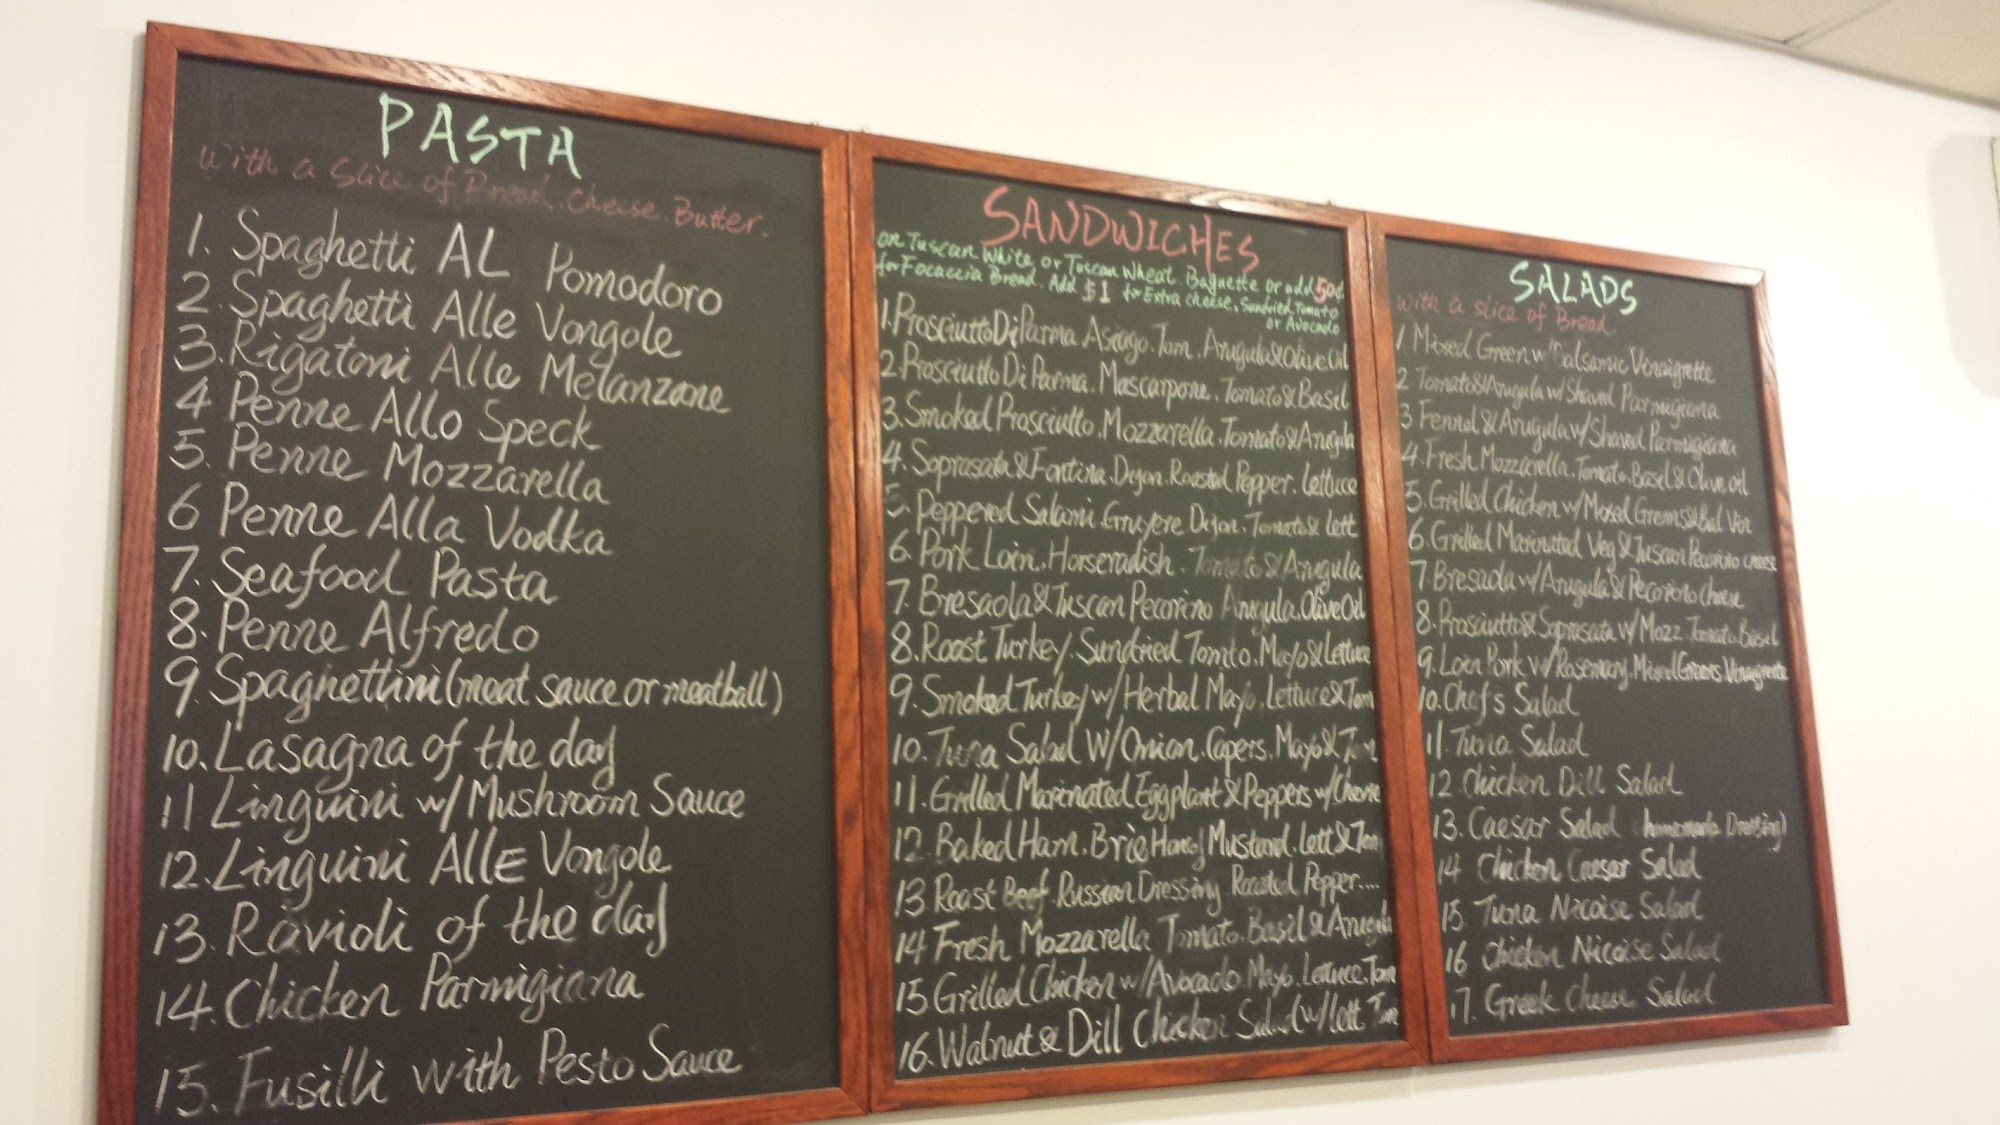 PASTA
With a Slice of Bread. Cheese. Butter.
1. Spaghetti AL Pomodoro
2. Spaghetti Alle Vongole
3. Rigatoni Alle Melanzane
4 Penne Allo Speck
5. Penne Mozzarella
6 Penne Alla Vodka
7. Seafood Pasta
8. Penne Alfredo
9. Spaghettini (meat sauce or meatball)
10. Lasagna of the day
11 Linguini w/ Mushroom Sauce
12. Linguini ALLE Vongole
13. Ravioli of the day
14. Chicken Parmigiana
15. Fusilli with Pesto Sauce
SANDWICHES
on Tuscan White or Tuscan Wheat. Baguette or add 50¢
for Focaccia Bread. Add $1 for Extra cheese, Sundried Tomato
or Avocado
1. Prosciutto Di Parma. Asiago. Tom. Arugula & Olive Oil
2. Prosciutto Di Parma. Mascarpone. Tomato & Basil
3. Smoked Prosciutto. Mozzarella. Tomato & Arugula
4. Soprasata & Fontina. Dijon. Roasted Pepper. Lettuce
5. Peppered Salami. Gruyere Dijon. Tomato & Lett
6. Pork Loin. Horseradish. Tomato & Arugula
7. Bresaola & Tuscan Pecorino Arugula. Olive Oil
8. Roast Turkey. Sundried Tomto. Mayo & Lettuce
9. Smoked Turkey w/ Herbal Mayo. Lettuce & Tom
10. Tuna Salad W/ Onion. Capers. Mayo & Tom
11. Grilled Marinated Eggplant & Peppers w/
12. Baked Ham. Brie Honey Mustard. Lett & Tom
13. Roast Beef. Russian Dressing Roasted Pepper....
14 Fresh Mozzarella Tomato. Basil & Arugula
15 Grilled Chicken w/ Avocado. Mayo. Lettuce. Tom
16. Walnut & Dill Chicken Salad w/ Lett Tom
SALADS
with a slice of Bread
1. Mixed Green w/ Balsamic Vinaigrette
2 Tomato & Arugula w/ Shaved Parmigiana
3 Fennel & Arugula w/ Shaved Parmigiana
4. Fresh Mozzarella. Tomato. Basil & Olive oil
5. Grilled Chicken w/ Mixed Greens & Bal Vin
6. Grilled Marinated Veg & Tuscan Pecorino cheese
7. Bresaola w/ Arugula & Pecorino cheese
8. Prosciutto & Soprasata w/ Mozz Tomato. Basil
9. Loin Pork w/ Rosemary. Mixed Greens Vinaigrette
10. Chef's Salad
11. Tuna Salad
12. Chicken Dill Salad
13. Caesar Salad (homemade Dressing)
14 Chicken Caesar Salad
15. Tuna Nicoise Salad
16 Chicken Nicoise Salad
17. Greek Cheese Salad